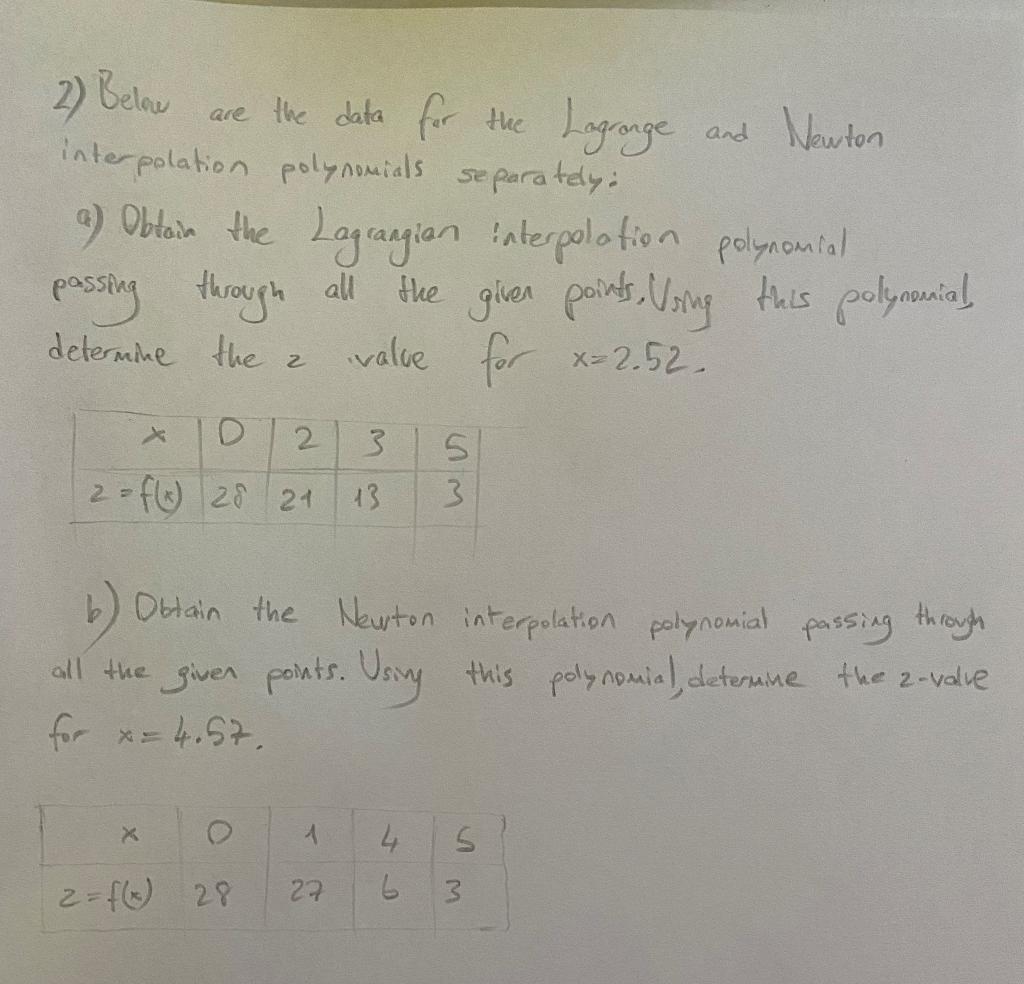 2) Below are the data for the Lagrange and Newton
interpolation polynomials separately:
a) Obtain the Lagrangian interpolation polynomial
passing through all the given points. Using this polynomial,
determine the z value for x=2.52.
x 0 2 3 5
z=f(x) 28 21 13 3
b) Obtain the Newton interpolation polynomial passing through
all the given points. Using this polynomial, determine the z-value
for x=4.57.
x 0 1 4 5
z=f(x) 28 27 6 3